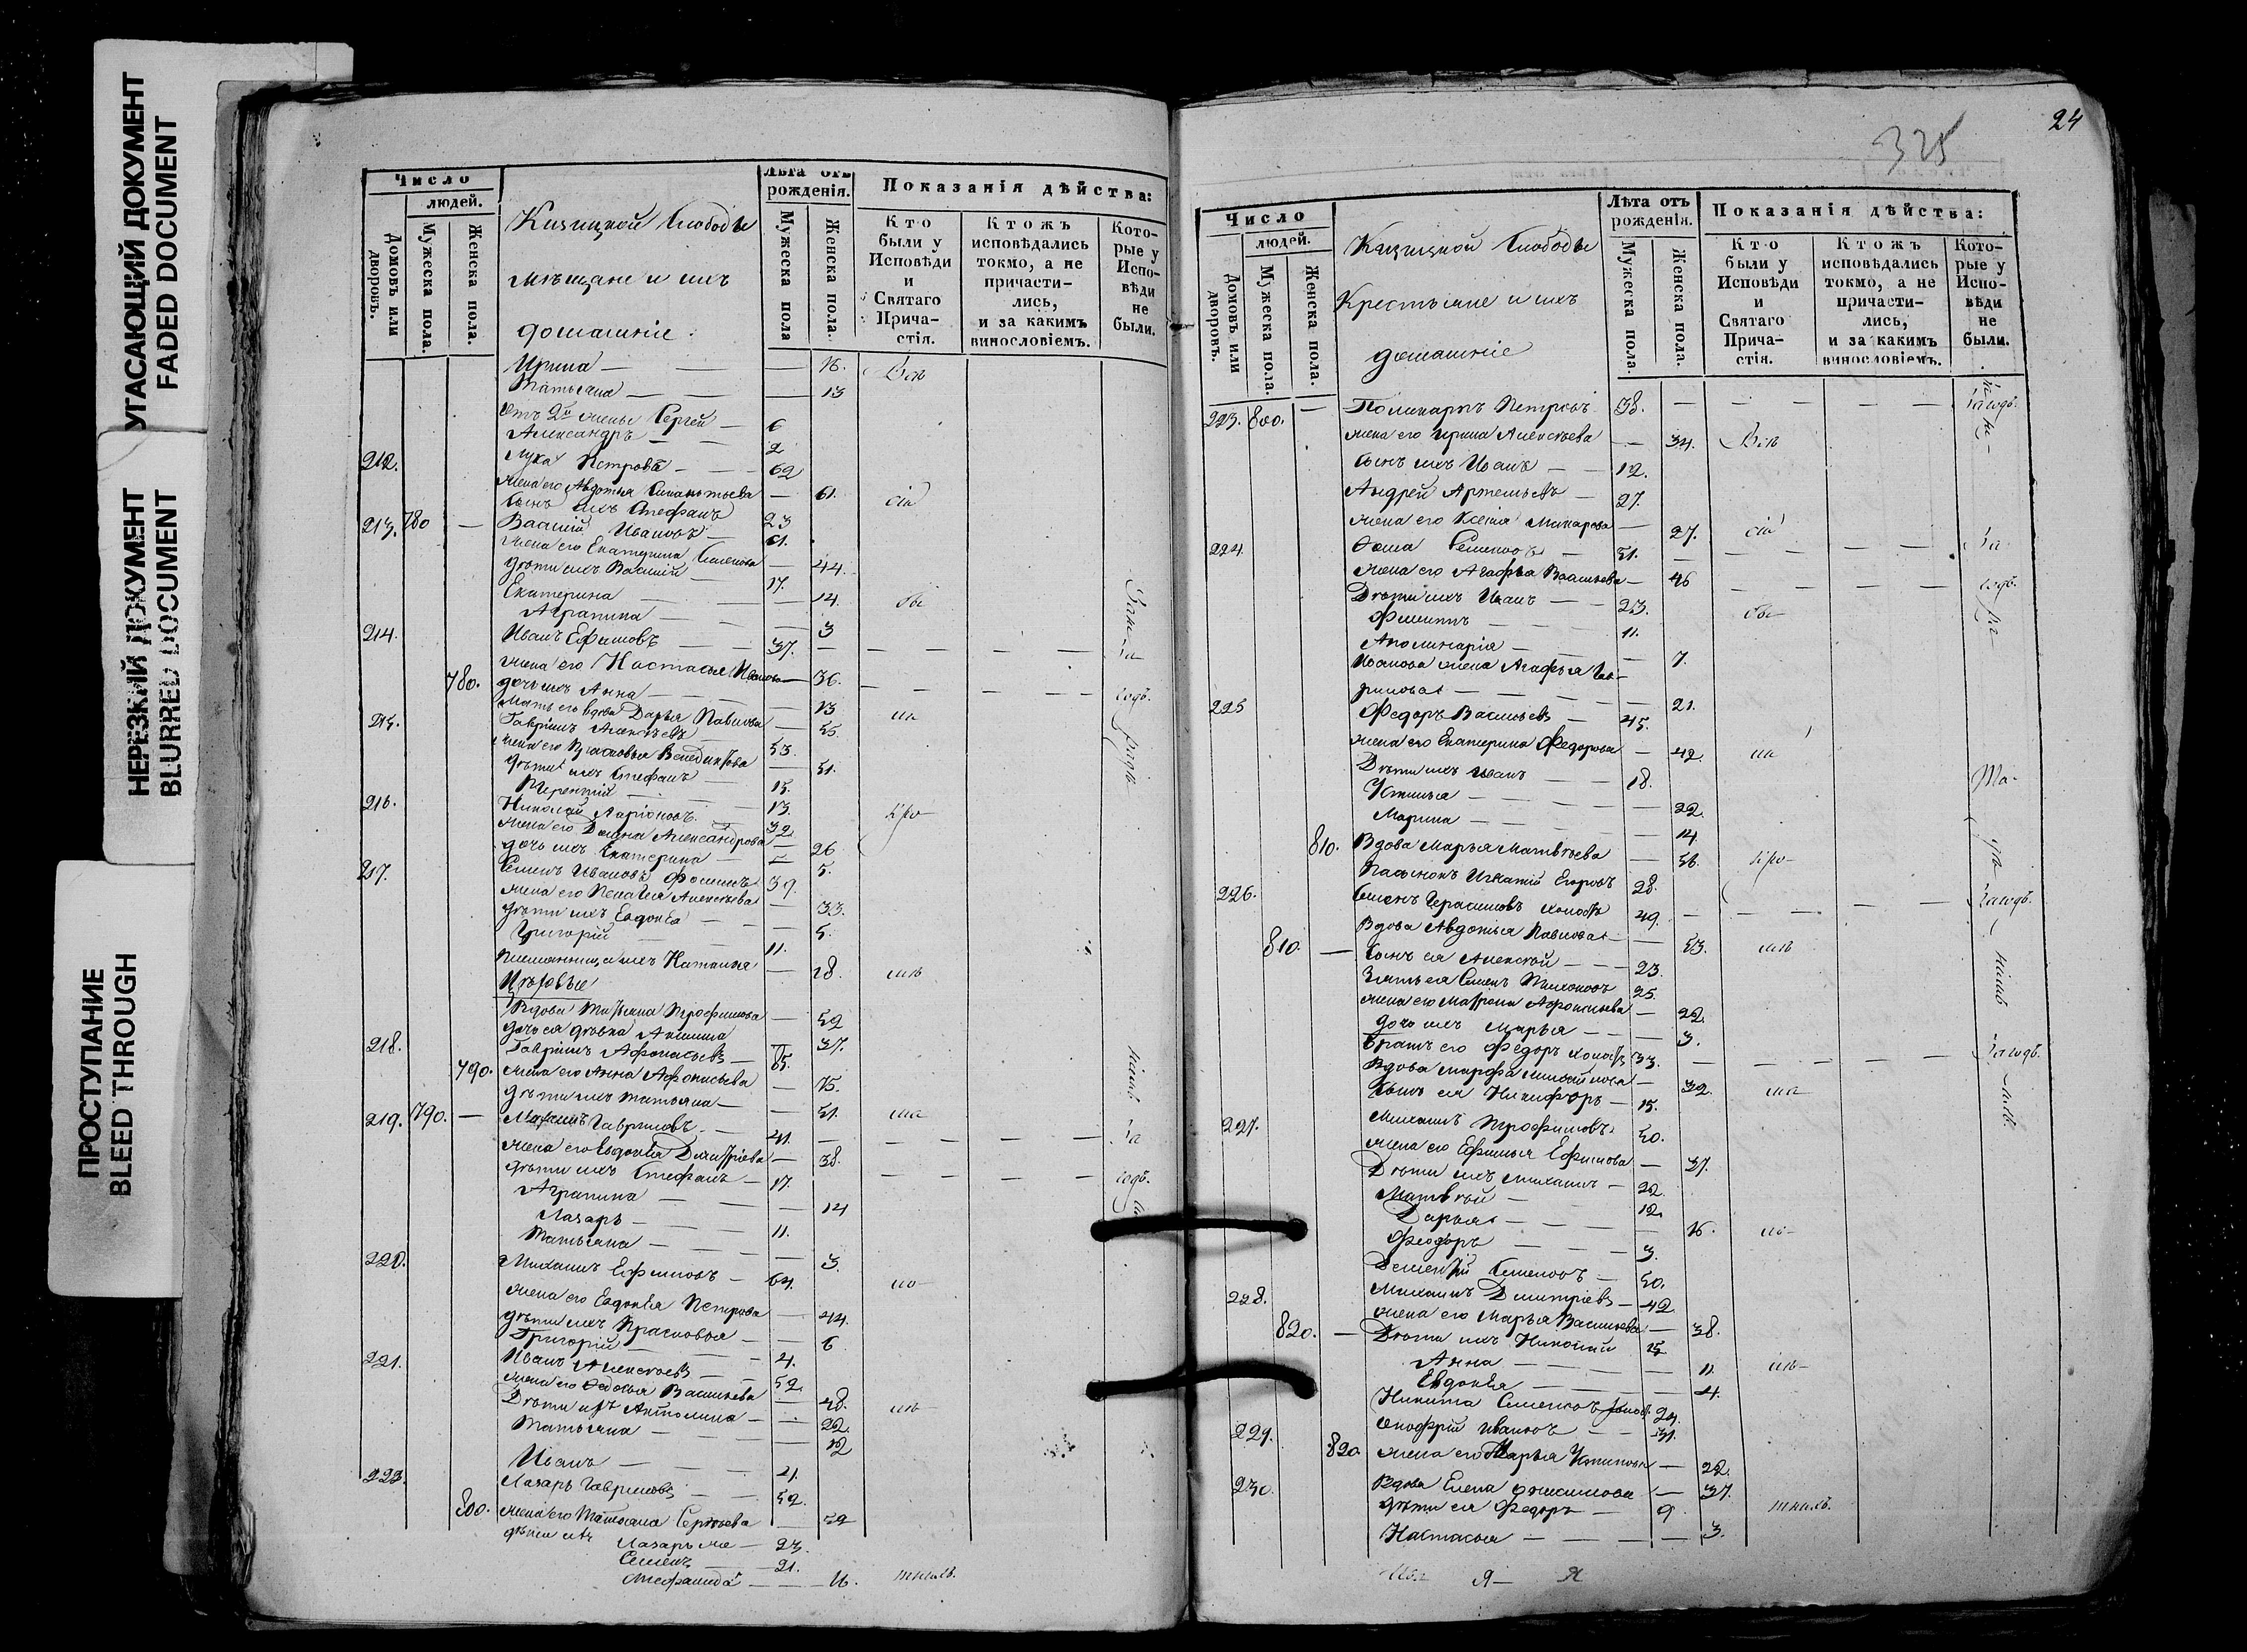 УГАСАЮЩИЙ ДОКУМЕНТ
FADED DOCUMENT
НЕРЕЗКИЙ ДОКУМЕНТ
BLURRED DOCUMENT
ПРОСТУПАНИЕ
BLEED THROUGH
Число
людей.
Домовъ или дворовъ.
Мужеска пола.
Женска пола.
Кизицкой Слободы
мѣщане и ихъ
домашніе.
Лѣта отъ рожденія.
Мужеска пола
Женска пола.
Показанія дѣйства:
Кто были у Исповѣди и Святаго Причастія.
Ктожъ исповѣдались токмо, а не причастились, и за какимъ винословіемъ.
Которые у Исповѣди не были.
Ирина — 16. Всѣ
Татьяна — 13
Отъ 2й жены Сергей — 6
Александръ — 2
212. Лука Петровъ — 62
жена его Авдотья — 61. сіи
сынъ ихъ Стефанъ 23
213. 780 — Василій Ивановъ — 61.
жена его Екатерина Семенова — 44.
дѣти ихъ Василій — 17.
Екатерина — 14. бы
Аграпина — 3
214. Иванъ Ефимовъ 37. — За
780. жена его Настасья Иванова — 36. — годъ.
дочь ихъ Анна — 13
Мать его вдова Дарья Павлова — 55. ли
215. Гавріилъ Алексѣевъ 53.
жена его — 51.
дѣти ихъ Стефанъ — 15.
Терентій — 13.
216. Николай Ларіоновъ — 32. кро
жена его Александрова — 26
дочь ихъ Екатерина — 5.
217. Семенъ Ивановъ 39.
жена его Пелагея Алексѣева — 33.
дѣти ихъ Евдокія — 5.
Григорій — 11.
племянница ихъ Наталья — 18. мѣ
Вдова Татьяна Трофимова — 52
дочь ея дѣвка Акилина 37.
218. Гавріилъ Афонасьевъ — 85.
790. жена его Анна Афонасьева — 75.
дѣти ихъ Татьяна — 51. ма
219. 790. — Гавриловъ — 41. — За
жена его Евдокія Дмитріева — 38.
дѣти ихъ Стефанъ — 17. — годъ.
Аграпина — 14
Лазарь — 11.
Татьяна — 3.
220. Михаилъ Ефимовъ — 64. ло
жена его Евдокія Петрова — 44.
дѣти ихъ Прасковья — 6
Григорій — 4.
221. Иванъ Алексѣевъ — 52
жена его Федосья Васильева — 48. лѣ
Дѣти ихъ — 22.
Татьяна — 12
Иванъ — 4.
222. Лазарь Гавриловъ — 52.
800. жена его Татьяна Сергѣева — 52
дѣти ихъ Лазарь же — 23.
Семенъ — 21.
Степанида — 16. тнихъ.
24
325
Число
людей.
Домовъ или дворовъ.
Мужеска пола.
Женска пола.
Кизицкой Слободы
Крестьяне и ихъ
домашніе
Лѣта отъ рожденія.
Мужеска пола.
Женска пола.
Показанія дѣйства:
Кто были у Исповѣди и Святаго Причастія.
Ктожъ исповѣдались токмо, а не причастились, и за какимъ винословіемъ.
Которые у Исповѣди не были.
223. 800. — Поликарпъ Петровъ 38. —
жена его Ирина Алексѣева — 34. Всѣ
Сынъ ихъ Иванъ — 12.
Андрей Артемьевъ — 27.
жена его Ксенія Макарова — 27. сіи
224. Фома Семеновъ — 51. — За
жена его Агафья Васильева — 46 — годъ.
Дѣти ихъ Иванъ — 23. бы
Филиппъ — 11.
Аполинарія — 7.
Иванова жена Агафья Гавриловa — 21.
225 Федоръ Васильевъ — 45.
жена его Екатерина Федорова — 42. ли
Дѣти ихъ Иванъ — 18.
Устинья — 22.
Марина — 14.
810. Вдова Марья Матвѣева — 56. кро
Пасынокъ Игнатій Егоровъ 28.
226. Семенъ Герасимовъ холостъ 49. — За годъ.
Вдова Авдотья Павлова — 53. мѣ
810. — Сынъ ея Алексѣй — 23.
Зять ея Семенъ Тихоновъ 25.
жена его Матрона Афонасьева — 22.
дочь ихъ Марья — 3.
братъ его Федоръ холостъ 33. — За годъ.
Вдова Марфа Михайлова — 32. ма
Сынъ ея Никифоръ — 15.
227. Михаилъ Трофимовъ 50.
жена его Ефимья Ефимова — 37.
Дѣти ихъ Михаилъ — 22
Матвѣй — 12
Дарья — 16. ло
Феодоръ — 3.
Дементій Семеновъ — 50.
228. Михаилъ Дмитріевъ — 42
жена его Марья Васильева — 38.
820. — Дѣти ихъ Николай 15
Анна — 11. лѣ
Евдокія — 4.
Никита Семеновъ холост. 24.
229. Онофрій Ивановъ — 31.
820 жена его Марья — 22.
230. Вдова Елена — 37.
дѣти ея Федоръ — 9. тнихъ.
Настасья — 3.